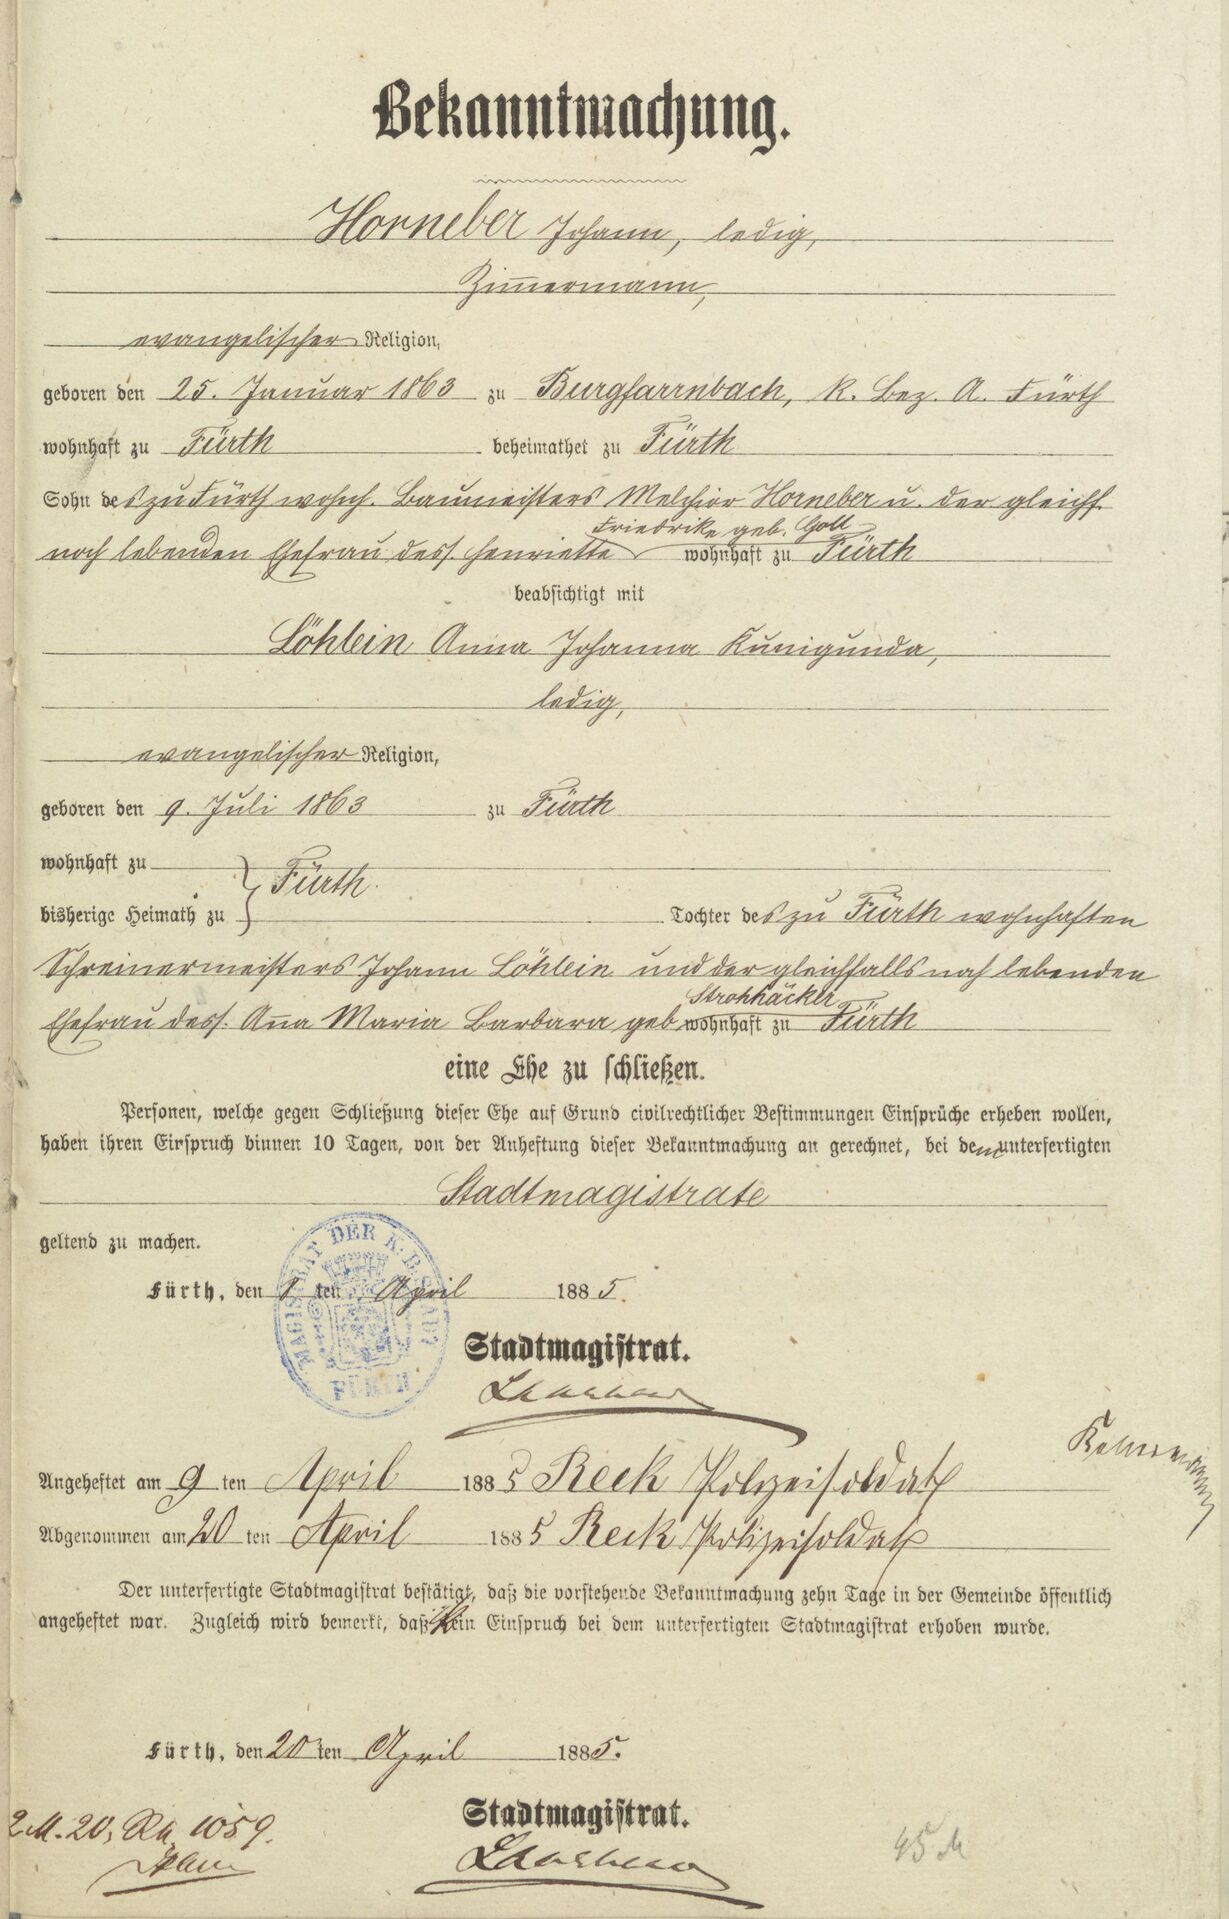 Bekanntmachung.
Horneber Johann, ledig,
Zimmermann,
evangelischer Religion,
geboren den 25. Januar 1863 zu Burgfarrnbach, k. Bez. A. Fürth
wohnhaft zu Fürth beheimathet zu Fürth
Sohn des zu Fürth wohnh. Baumeisters Melchior Horneber u. der gleichf.
Friedrike geb. Goll
noch lebenden Ehefrau dess. Henriette wohnhaft zu Fürth
beabsichtigt mit
Löhlein Anna Johanna Kunigunda,
ledig,
evangelischer Religion,
geboren den 9. Juli 1863 zu Fürth
wohnhaft zu
Fürth
bisherige Heimath zu Tochter des zu Fürth wohnhaften
Schreinermeisters Johann Löhlein und der gleichfalls noch lebenden
Strohhäcker
Ehefrau dess. Anna Maria Barbara geb. wohnhaft zu Fürth
eine Ehe zu schließen.
Personen, welche gegen Schließung dieser Ehe auf Grund civilrechtlicher Bestimmungen Einsprüche erheben wollen,
haben ihren Einspruch binnen 10 Tagen, von der Anheftung dieser Bekanntmachung an gerechnet, bei dem unterfertigten
Stadtmagistrate
geltend zu machen.
MAGISTRAT DER K. B. STADT FÜRTH
Fürth, den ten April 1885.
Stadtmagistrat.
Angeheftet am 9 ten April 1885 Reck Polizeisoldat
Abgenommen am 20 ten April 1885 Reck Polizeisoldat
Der unterfertigte Stadtmagistrat bestätigt, daß die vorstehende Bekanntmachung zehn Tage in der Gemeinde öffentlich
angeheftet war. Zugleich wird bemerkt, daß kein Einspruch bei dem unterfertigten Stadtmagistrat erhoben wurde.
Fürth, den 20 ten April 1885.
Stadtmagistrat.
2 M. 20, 1059.
45 M